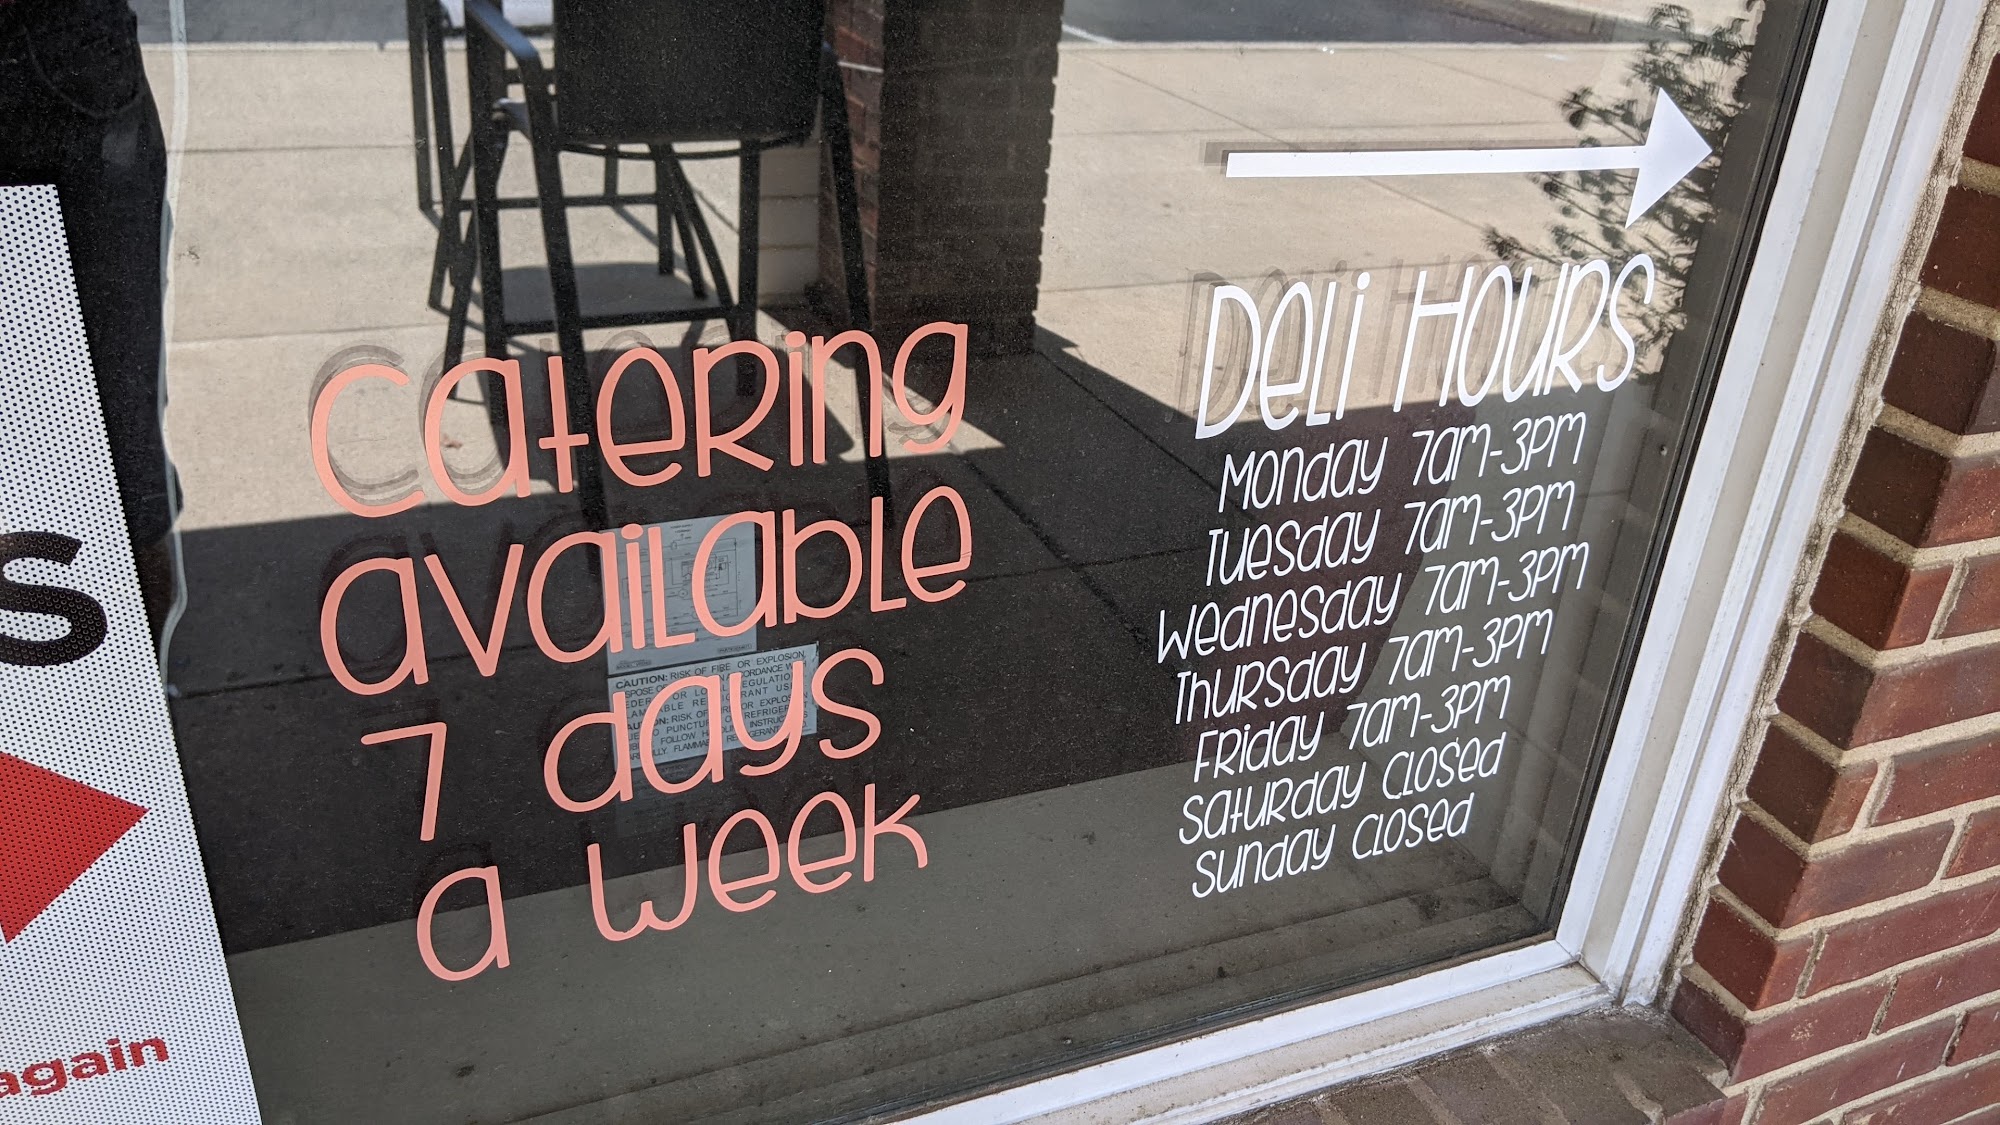 Catering
available
7 days
a week
Deli Hours
Monday 7am-3pm
Tuesday 7am-3pm
Wednesday 7am-3pm
Thursday 7am-3pm
Friday 7am-3pm
Saturday Closed
Sunday Closed
S
again
CAUTION: RISK OF FIRE OR EXPLOSION